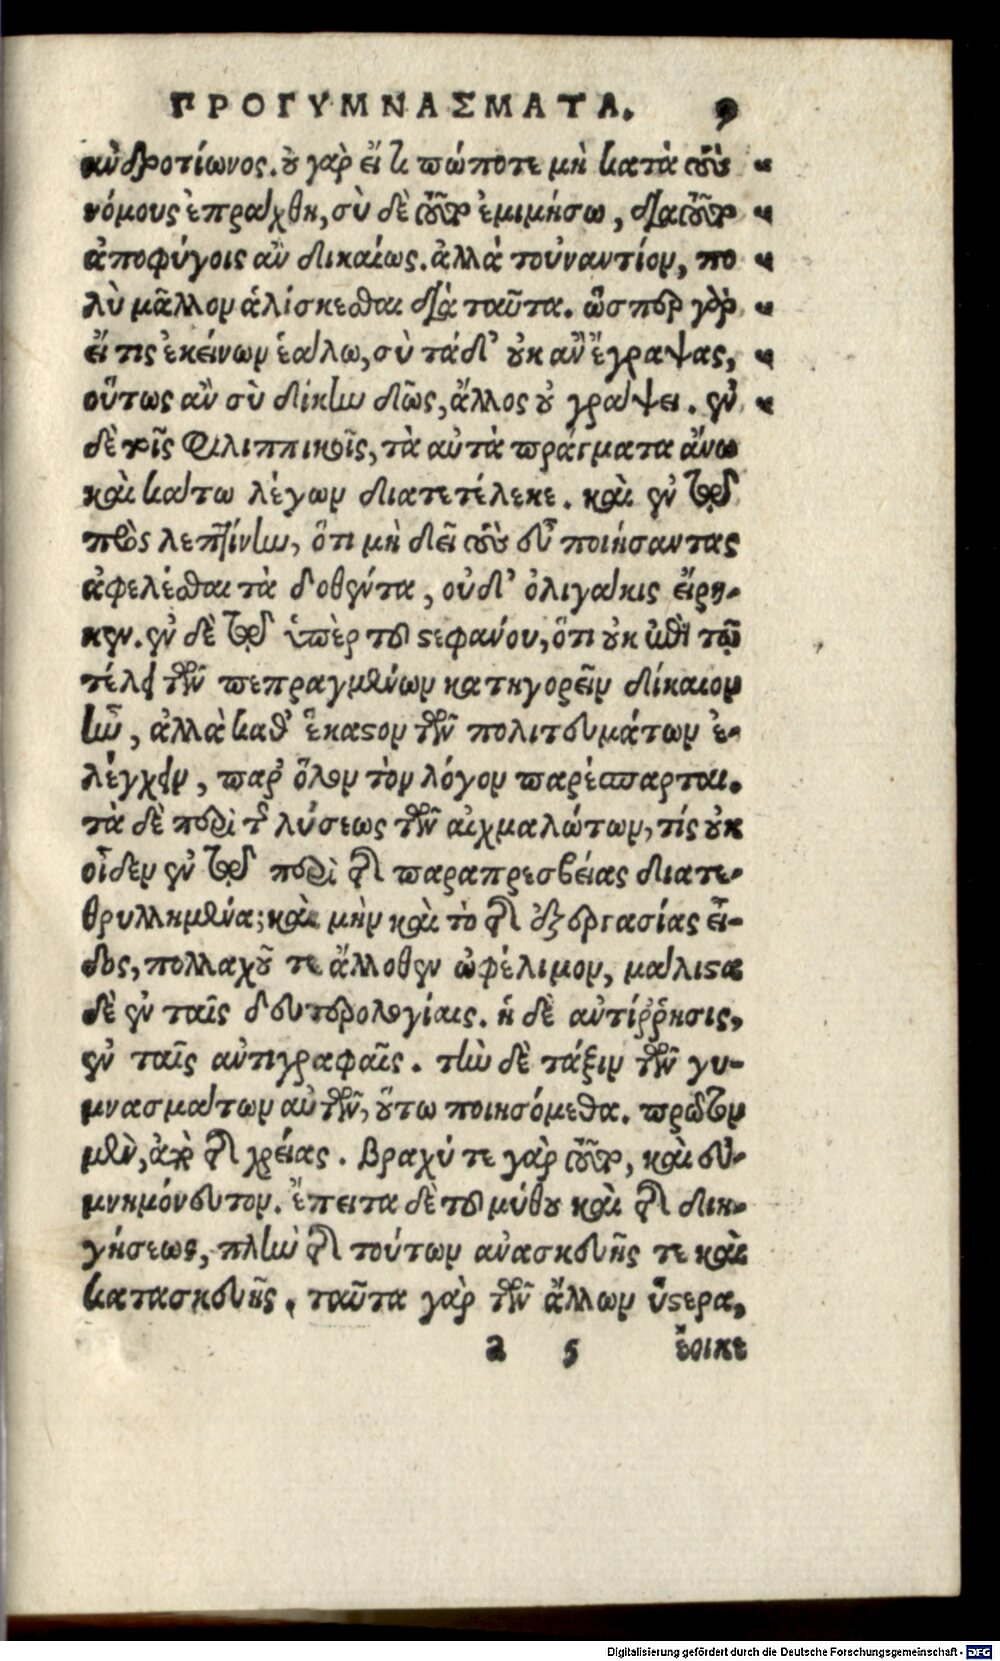 ΠΡΟΓΥΜΝΑΣΜΑΤΑ. 9
ἀνδροτίωνος. οὐ γὰρ εἴ τι πώποτε μὴ κατὰ τοὺς
νόμους ἐπράχθη, σὺ δὲ τοῦτο ἐμιμήσω, διὰ τοῦτο
ἀποφύγοις ἂν δικαίως. ἀλλὰ τοὐναντίον, πο
λὺ μᾶλλον ἁλίσκεσθαι διὰ ταῦτα. ὥσπερ γὰρ
εἴ τις ἐκείνων ἑάλω, σὺ τάδ' οὐκ ἂν ἔγραψας,
οὕτως ἂν σὺ δίκην δῷς, ἄλλος οὐ γράψει. ἐν
δὲ τοῖς Φιλιππικοῖς, τὰ αὐτὰ πράγματα ἄνω
καὶ κάτω λέγων διατετέλεκε. καὶ ἐν τῷ
πρὸς λεπτίνην, ὅτι μὴ δεῖ τοὺς εὖ ποιήσαντας
ἀφελέσθαι τὰ δοθέντα, οὐδ' ὀλιγάκις εἴρη-
κεν. ἐν δὲ τῷ ὑπὲρ τοῦ στεφάνου, ὅτι οὐκ ἐπὶ τῷ
τέλει τῶν πεπραγμένων κατηγορεῖν δίκαιον
ἦν, ἀλλὰ καθ' ἕκαστον τῶν πολιτευμάτων ἐ-
λέγχειν, παρ' ὅλον τὸν λόγον παρέσπαρται.
τὰ δὲ περὶ τῆς λύσεως τῶν αἰχμαλώτων, τίς οὐκ
οἶδεν ἐν τῷ περὶ τῆς παραπρεσβείας διατε-
θρυλλημένα; καὶ μὴν καὶ τὸ τῆς ἐξεργασίας εἶ-
δος, πολλαχοῦ τε ἄλλοθεν ὠφέλιμον, μάλιστα
δὲ ἐν ταῖς δευτερολογίαις. ἡ δὲ ἀντίῤῥησις,
ἐν ταῖς ἀντιγραφαῖς. τὴν δὲ τάξιν τῶν γυ-
μνασμάτων αὐτῶν, οὕτω ποιησόμεθα. πρῶτον
μὲν, ἀπὸ τῆς χρείας. βραχύ τε γὰρ τοῦτο, καὶ εὐ-
μνημόνευτον. ἔπειτα δὲ τοῦ μύθου καὶ τῆς διη-
γήσεως, πλὴν τῆς τούτων ἀνασκευῆς τε καὶ
κατασκευῆς. ταῦτα γὰρ τῶν ἄλλων ὕστερα,
a 5 ἔοικε
Digitalisierung gefördert durch die Deutsche Forschungsgemeinschaft - DFG